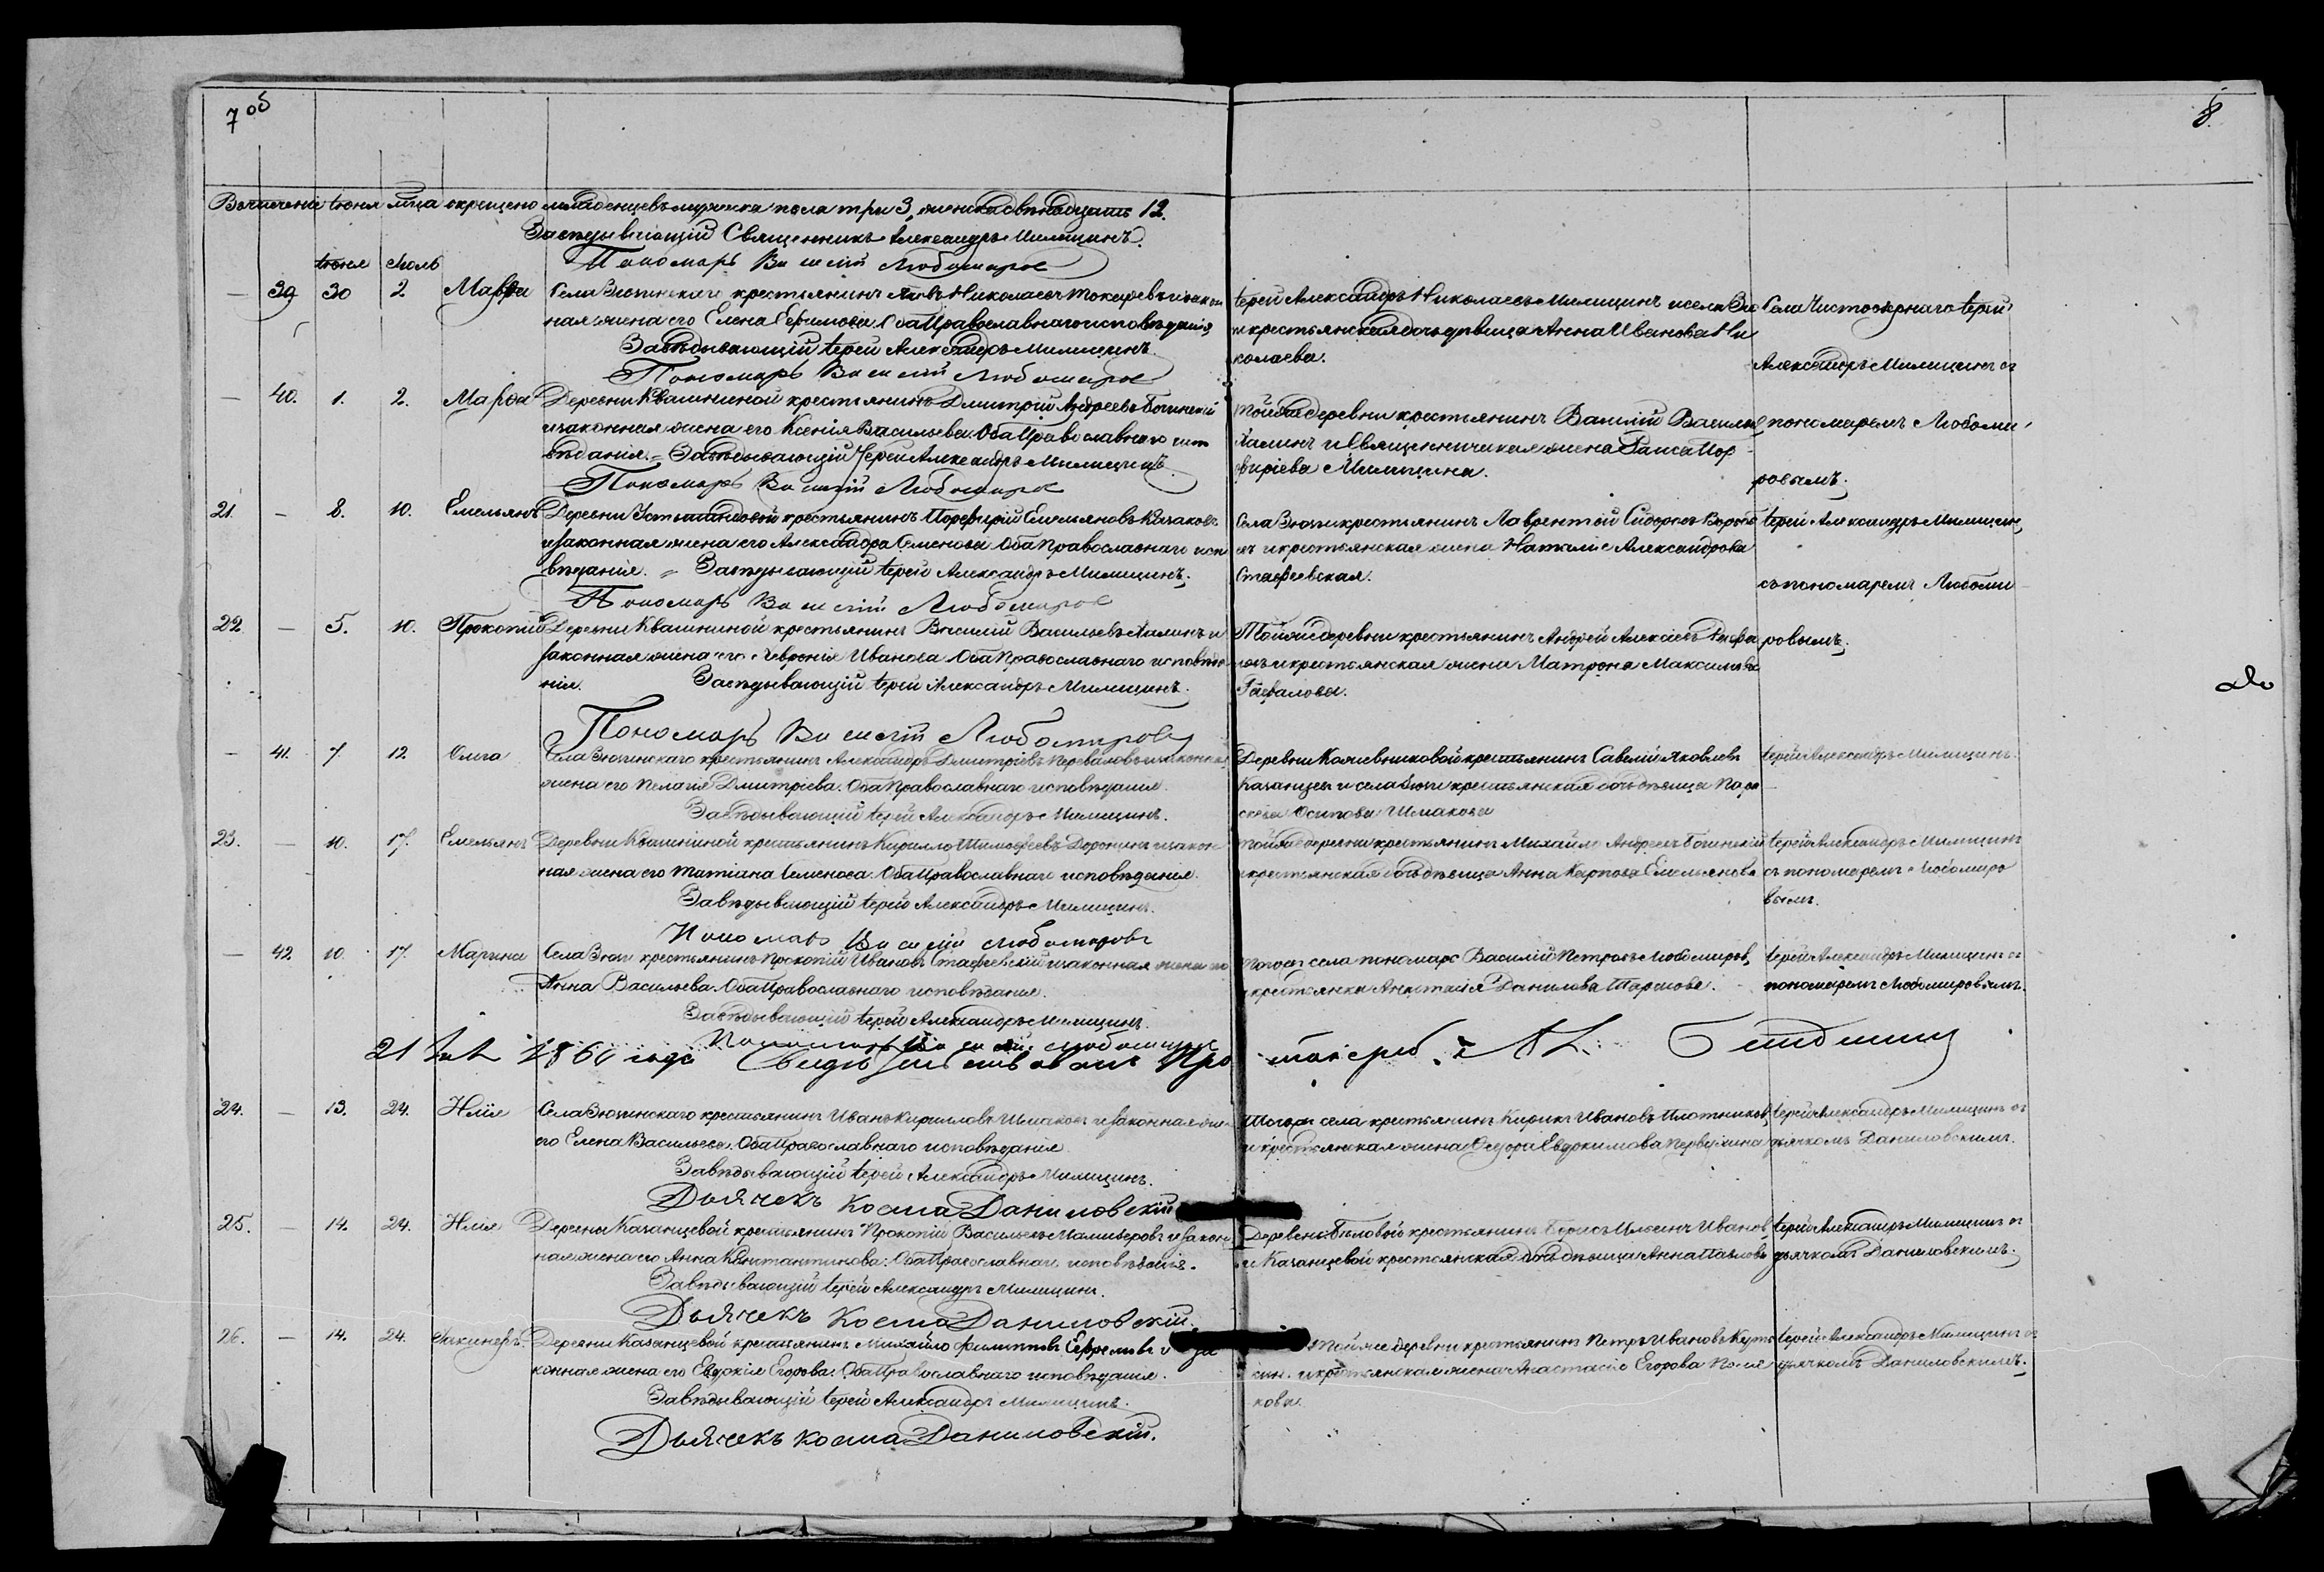 7 об
8.
В теченіе Іюня м͠ца окрещено младенцевъ мужеска пола три 3, женска двѣнадцать 12.
Завѣдывающій Священникъ Александръ Милицинъ.
Пономарь Василій Любомировъ
Іюня Іюль
— 39 30 2 Марѳа Села крестьянинъ Николаевъ Токаревъ и закон
ная жена его Елена Ефимова. Оба Православнаго исповѣданія,
Завѣдывающій Іерей Александръ Милицинъ.
Пономарь Василій Любомировъ
Іерей Александръ Николаевъ Милицинъ и села Зю
и крестьянская дочь дѣвица Анна Иванова Ни
колаева.
Села Чистоозернаго Іерей
Александръ Милицинъ съ
— 40. 1. 2. Марѳа Деревни Квашниной крестьянинъ Дмитрій Андреевъ
и законная жена его Ксенія Васильева. Оба Православнаго испо
вѣданія. = Завѣдывающій Іерей Александръ Милицинъ
Пономарь Василій Любомировъ
Той же деревни крестьянинъ Василій Васильевъ
Лалинъ и Священническая жена Раиса Пор
фиріева Милицина.
пономаремъ Любоми
ровымъ.
21. — 8. 10. Емельянъ Деревни крестьянинъ Порфирій Емельяновъ Казаковъ
и законная жена его Александра Семенова. Оба Православнаго испо
вѣданія. = Завѣдывающій Іерей Александръ Милицинъ.
Пономарь Василій Любомировъ
Села Зюзи крестьянинъ Лаврентій Сидоровъ
и крестьянская жена Наталія Александрова
Стафеевская.
Іерей Александръ Милицинъ,
съ пономаремъ Любоми
22. — 5. 10. Прокопій Деревни Квашниной крестьянинъ Василій Васильевъ Лалинъ и
законная жена его Февронія Иванова. Оба Православнаго исповѣда
нія. Завѣдывающій Іерей Александръ Милицинъ.
Пономарь Василій Любомировъ
Той же деревни крестьянинъ Андрей Алексеевъ
и крестьянская жена Матрона Максимова
ровымъ.
— 41. 7. 12. Ольга Села Зюзинскаго крестьянинъ Александръ Дмитріевъ Переваловъ и законная
жена его Пелагія Дмитріева. Оба Православнаго исповѣданія.
Завѣдывающій Іерей Александръ Милицинъ.
Деревни крестьянинъ Савелій Яковлевъ
Казанцевъ и села Зюзи крестьянская дочь дѣвица Пара
скева Осипова Шмакова
Іерей Александръ Милицинъ.
23. — 10. 17. Емельянъ Деревни Квашниной крестьянинъ Кирилло Тимофеевъ Доронинъ и закон
ная жена его Татіана Семенова. Оба Православнаго исповѣданія.
Завѣдывающій Іерей Александръ Милицинъ.
Пономарь Василій Любомировъ
Той же деревни крестьянинъ Михайло Андреевъ
и крестьянская дочь дѣвица Анна Карпова Емельянова
Іерей Александръ Милицинъ
съ пономаремъ Любомиро
вымъ.
— 42. 10. 17. Марина Села Зюзи крестьянинъ Прокопій Ивановъ Стафеевскій и законная жена его
Анна Васильева. Оба Православнаго исповѣданія.
Завѣдывающій Іерей Александръ Милицинъ.
Пономарь Василій Любомировъ
Того села пономарь Василій Петровъ Любомировъ,
и крестьянка Анастасія Данилова Тарасова.
Іерей Александръ Милицинъ съ
пономаремъ Любомировымъ.
21 1860 года Свидѣтельствовалъ Протоіерей
24. — 13. 24. Илія Села Зюзинскаго крестьянинъ Иванъ Кирилловъ Шмаковъ и законная жена
его Елена Васильева. Оба Православнаго исповѣданія
Завѣдывающій Іерей Александръ Милицинъ.
Дьячекъ Косма Даниловскій
Того же села крестьянинъ Кирикъ Ивановъ Плотниковъ
и крестьянская жена Ѳедора Евдокимова Первухина
Іерей Александръ Милицинъ съ
дьячкомъ Даниловскимъ.
25. — 14. 24. Илія Деревни Казанцевой крестьянинъ Прокопій Васильевъ и закон
ная жена его Анна Константинова. Оба Православнаго исповѣданія.
Завѣдывающій Іерей Александръ Милицинъ.
Дьячекъ Косма Даниловскій.
Деревень: Бѣловой крестьянинъ Борисъ Ильинъ Ивановъ,
и Казанцевой крестьянская дочь дѣвица Анна Павлова
Іерей Александръ Милицинъ съ
дьячкомъ Даниловскимъ.
26. — 14. 24. Іакинѳъ. Деревни Казанцевой крестьянинъ Михайло Филипповъ Ефремовъ и за
конная жена его Евдокія Егорова. Оба Православнаго исповѣданія.
Завѣдывающій Іерей Александръ Милицинъ.
Дьячекъ Косма Даниловскій.
Той же деревни крестьянинъ Петръ Ивановъ
и крестьянская жена Анастасія Егорова Поля
кова.
Іерей Александръ Милицинъ съ
дьячкомъ Даниловскимъ.